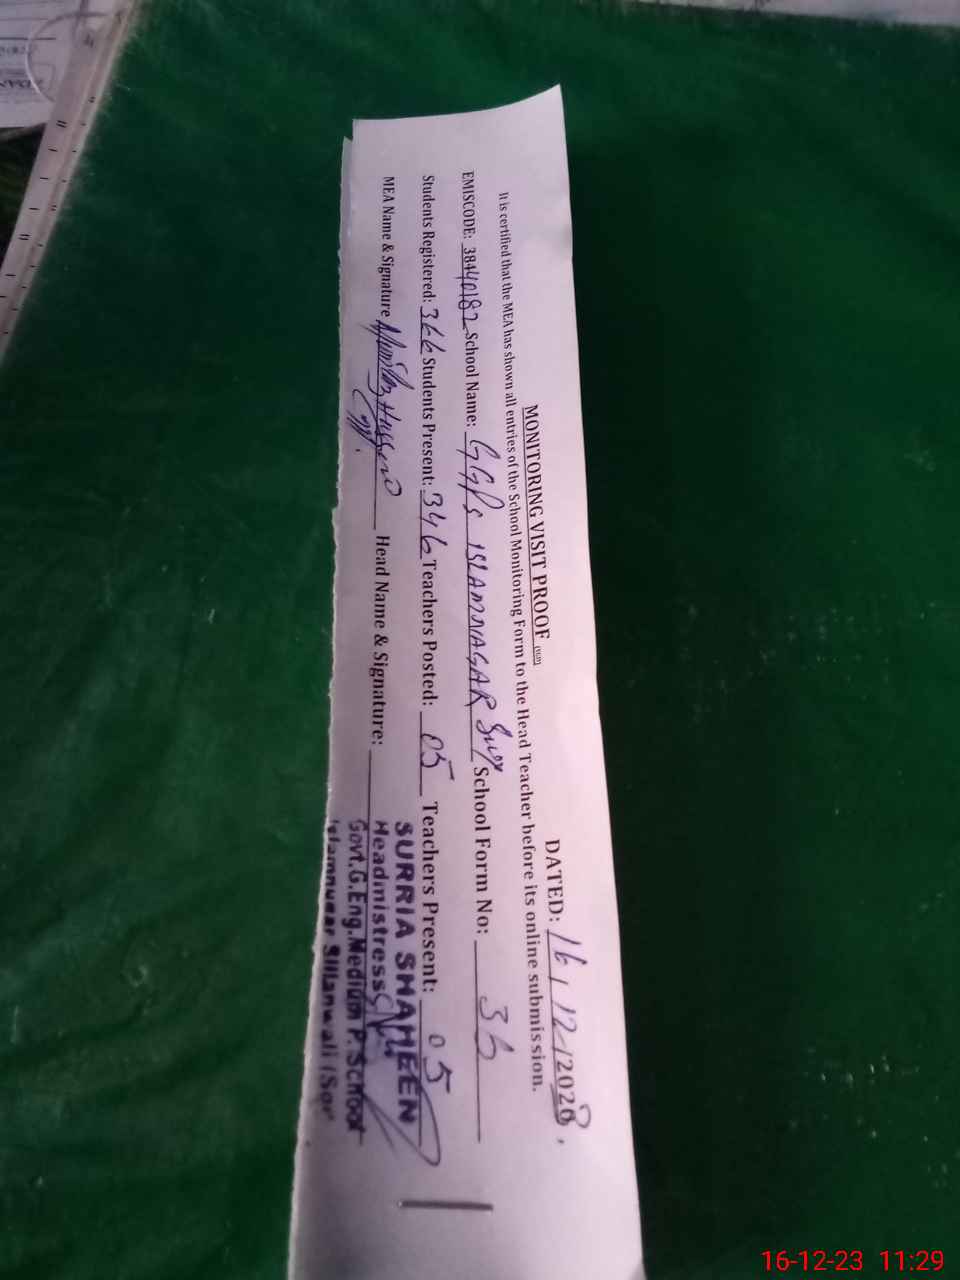 MONITORING VISIT PROOF
DATED: 16/12/202
It is certified that the MEA has shown all entries of the School Monitoring Form to the Head Teacher before its online submission.
EMISCODE: 38440182 School Name: GGPS ISLAMNAGAR School Form No: 36
Students Registered: 366 Students Present: 346 Teachers Posted: 05 Teachers Present: 05
MEA Name & Signature Head Name & Signature:
SURRIA SHAHEEN
Headmistress
Govt.G.Eng.Medium P.School
Sillanwali
16-12-23 11:29